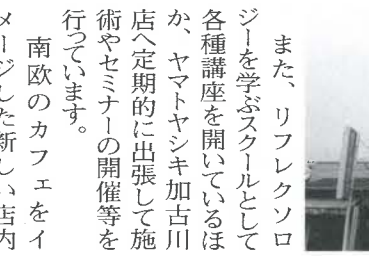 また、リフレクソロ
ジーを学ぶスクールとして
各種講座を開いているほ
か、ヤマトヤシキ加古川
店へ定期的に出張して施
術やセミナーの開催等を
行っています。
南欧のカフェをイ
メージした新しい店内